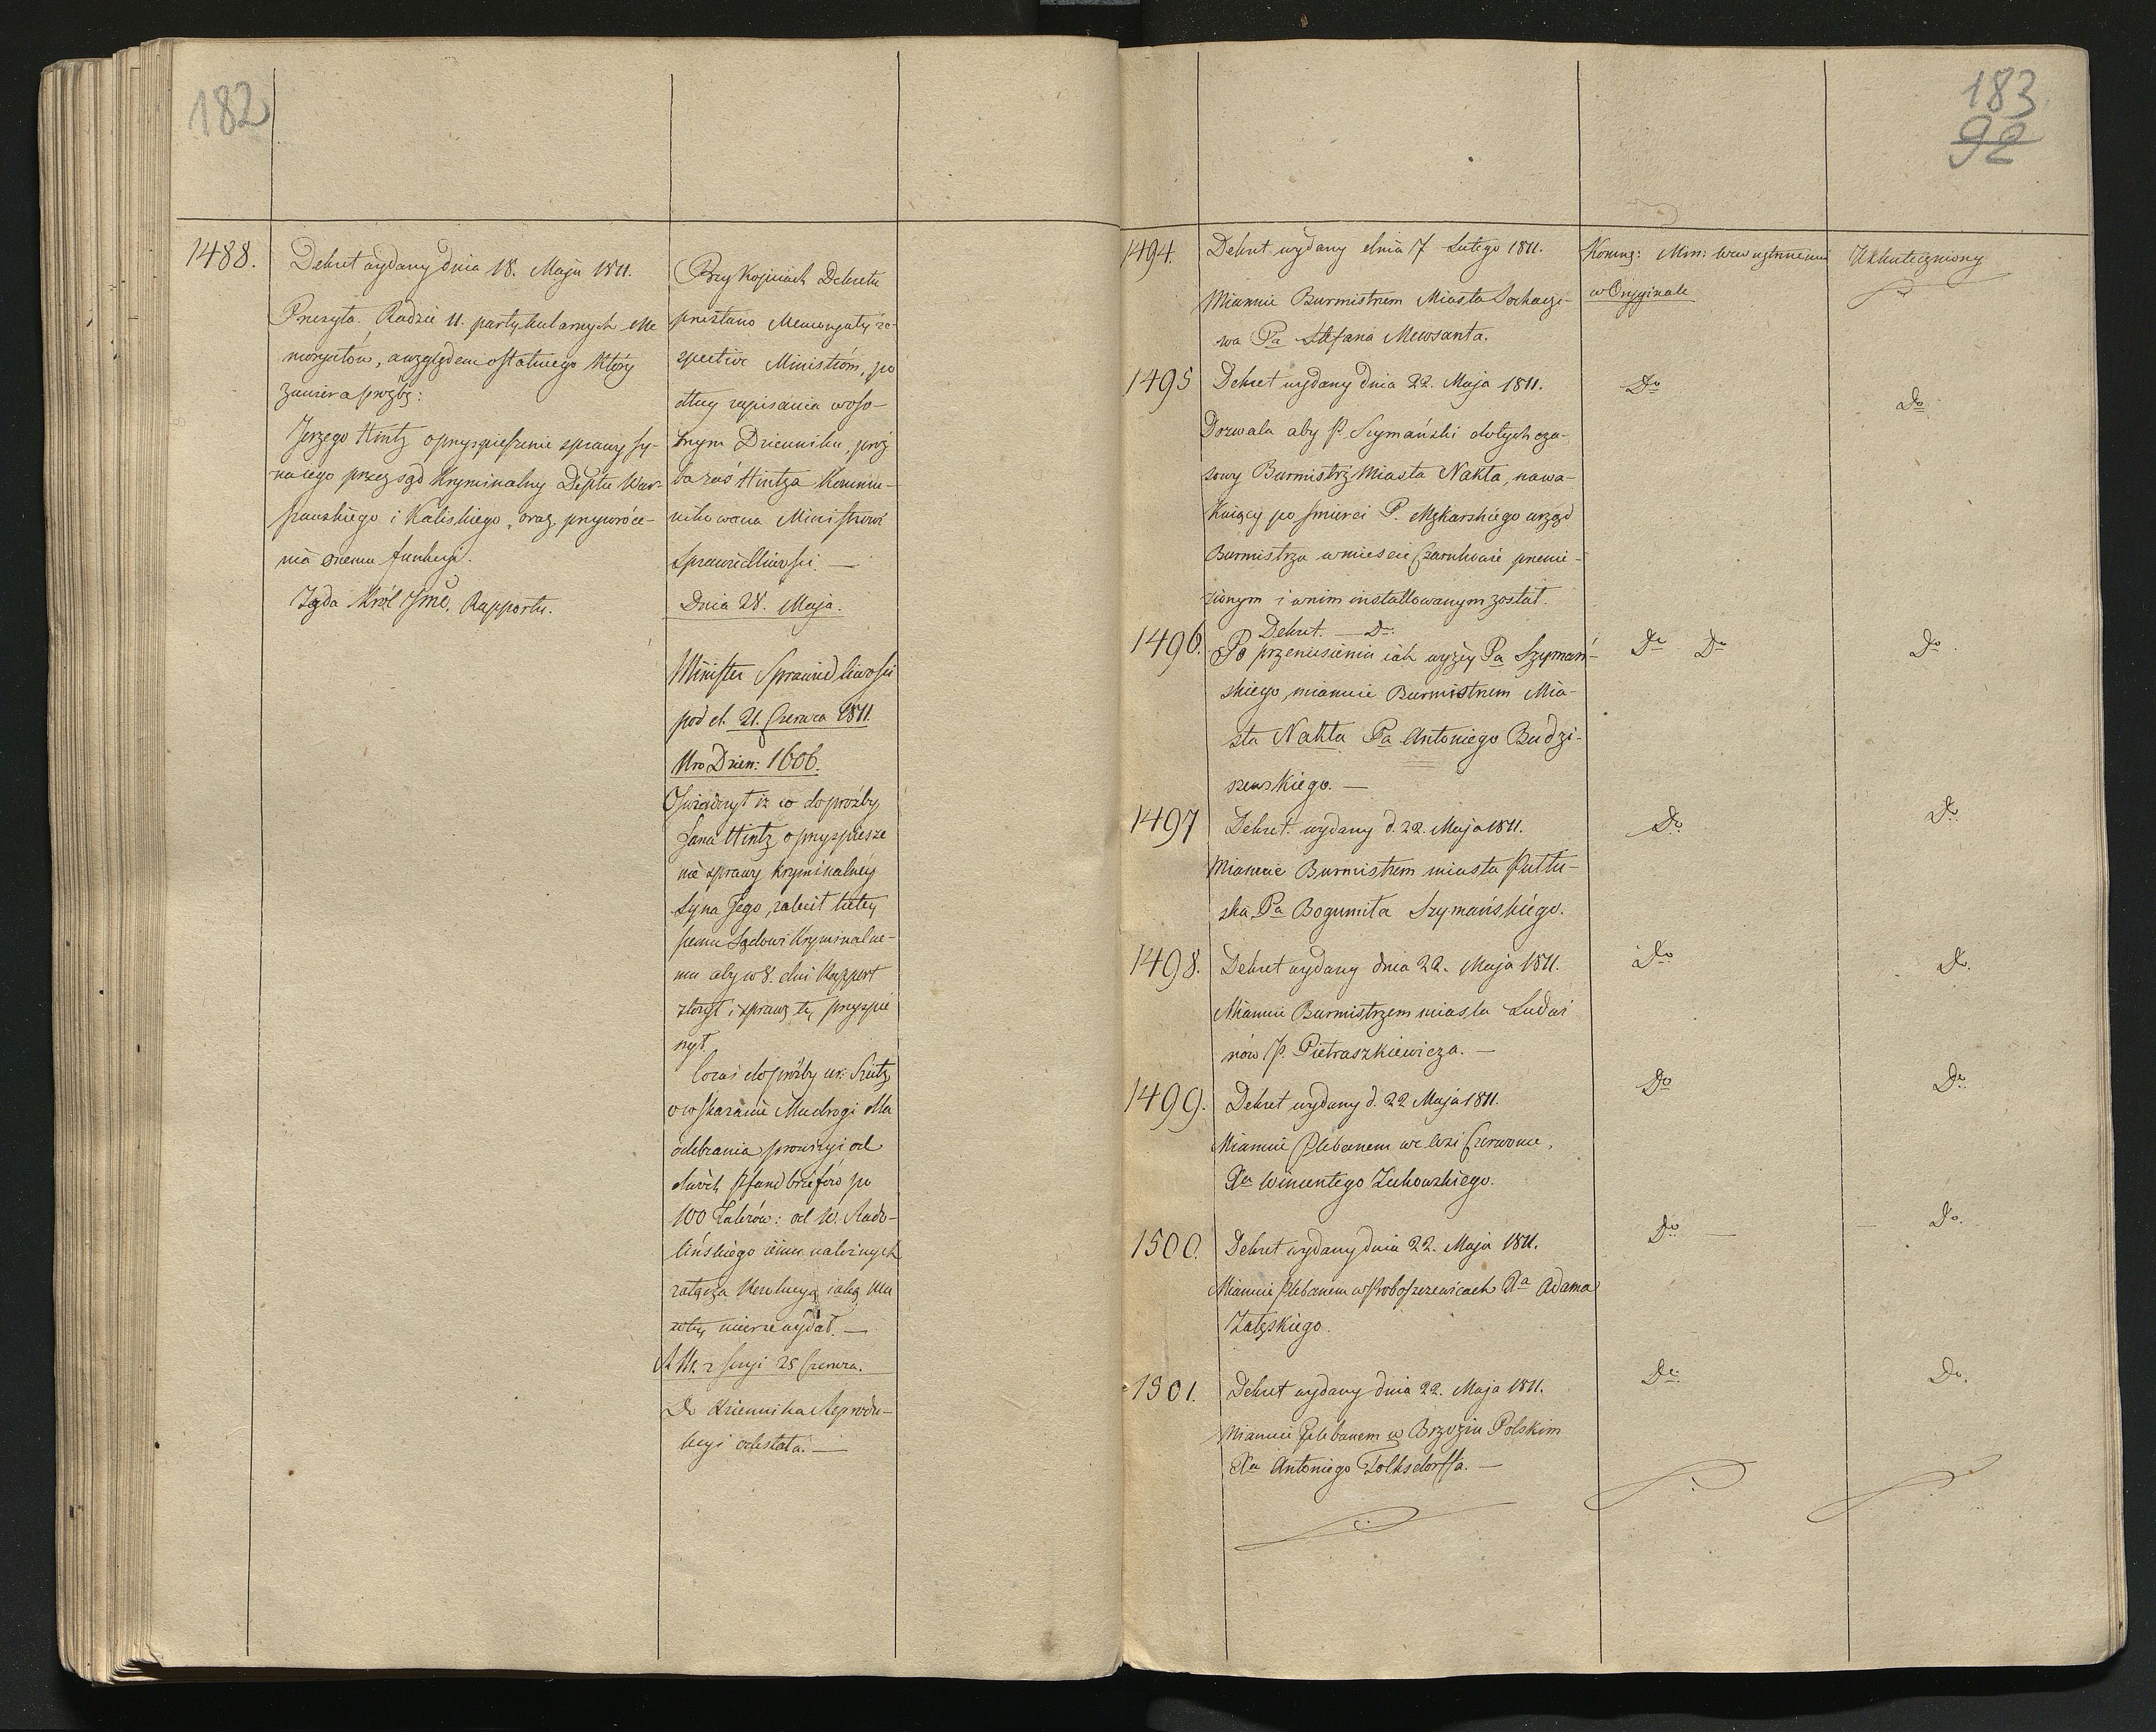 182
1488.
Dekret wydany dnia 18. Maja 1811.
Przesyła Radzie 11. partykularnych Me
moryałów, a względem ostatniego który
zawiera prozbę:
Jerzego Hintz o przyspieszenie sprawy sy-
na iego przez sąd Kryminalny Deptu War-
szawskiego i Kaliskiego, oraz przywróce-
nia onemu funkcyi.
Żąda Król Jmć. Rapportu.
Przy kopiach Dekretu
przesłano Memoryały re-
spective Ministrom, po
dług zapisania w oso-
bnym Dzienniku, proź
ba zaś Hintza Kommu-
nikowana Ministrowi
Sprawiedliwości. —
Dnia 28. Maja.
Minister Sprawiedliwości
pod d. 21. Czerwca 1811.
Nro Dzien: 1606.
Oświadczył iż co do proźby
Jana Hintz o przyspiesze
nie sprawy kryminalney
Syna Jego, zalecił tutey
szemu Sądowi Kryminalne-
mu aby w 8. dni Rapport
złożył i sprawę tę przyspie
szył.
Co zaś do proźby ur:
o wskazanie Mu drogi dla
odebrania prowizyi od
dwóch Pfandbriefów po
100 Talarów: od W. Rado-
lińskiego iemu należnych
załącza Rezolucyą iaką Mu
w tey mierze wydał. —
R. M. z sesyi 28 Czerwca.
Do dziennika Reprodu-
kcyi odesłała. —
183
92
1494.
Dekret wydany dnia 7 Lutego 1811.
Mianuie Burmistrzem Miasta Sochacze-
wa Pa Stefana Mewsanta.
Komm: Min: Wewnętrznemu
w Oryginale
Uskuteczniony
1495
Dekret wydany dnia 22. Maja 1811.
Dozwala aby P. Szymański dotychcza-
sowy Burmistrz Miasta Nakła, na wa-
kuiący po śmierci P. Mękarskiego urząd
Burmistrza w mieście Czarnkowie przenie-
sionym i w nim installowanym został.
Do
Do
1496.
Dekret. — Do:
Po przeniesieniu iak wyżey Pa Szymań-
skiego, mianuie Burmistrzem Mia-
sta Nakła Pa Antoniego Budzi-
szewskiego. —
Do Do
Do
1497
Dekret wydany d. 22. Maja 1811.
Mianuie Burmistrzem miasta Pułtu-
ska Pa Bogumiła Szymańskiego.
Do
Do
1498.
Dekret wydany dnia 22. Maja 1811.
Mianuie Burmistrzem miasta Ludwi
nów P. Pietraszkiewicza. —
Do
Do.
1499.
Dekret wydany d. 22 Maja 1811.
Mianuie Plebanem we Wsi Czerwonce,
Xa Wincentego Żukowskiego.
Do
Do
1500.
Dekret wydany dnia 22. Maja 1811.
Mianuie Plebanem w Proboszczewicach Xa Adama
Załęskiego.
Do —
Do.
1501.
Dekret wydany dnia 22. Maja 1811.
Mianuie Plebanem w Brzoziu Polskim
Xa Antoniego Tolksdorffa. —
Do
Do.